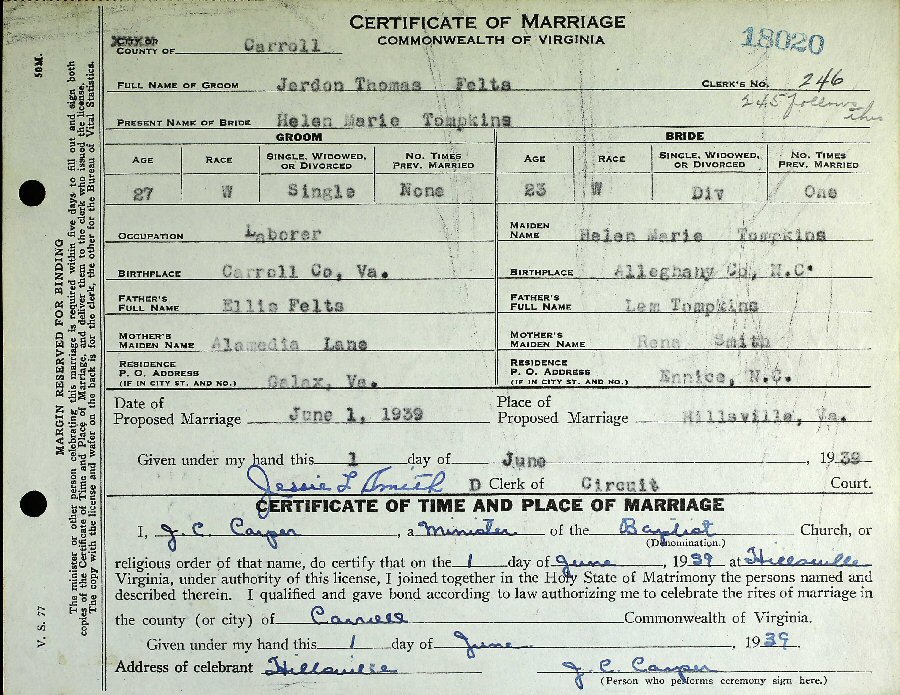 CERTIFICATE OF MARRIAGE
COMMONWEALTH OF VIRGINIA
18020
COUNTY OF Carroll
FULL NAME OF GROOM Jerdon Thomas Felts CLERK'S NO. 246
245 follows this
PRESENT NAME OF BRIDE Helen Marie Tompkins
GROOM BRIDE
AGE RACE SINGLE, WIDOWED, OR DIVORCED NO. TIMES PREV. MARRIED AGE RACE SINGLE, WIDOWED, OR DIVORCED NO. TIMES PREV. MARRIED
27 W Single None 23 W Div One
OCCUPATION Laborer MAIDEN NAME Helen Marie Tompkins
BIRTHPLACE Carroll Co, Va. BIRTHPLACE Alleghany Co, N.C.
FATHER'S FULL NAME Ellis Felts FATHER'S FULL NAME Lem Tompkins
MOTHER'S MAIDEN NAME Alamedia Lane MOTHER'S MAIDEN NAME Rena Smith
RESIDENCE P. O. ADDRESS (IF IN CITY ST. AND NO.) Galax, Va. RESIDENCE P. O. ADDRESS (IF IN CITY ST. AND NO.) Ennice, N.C.
Date of Proposed Marriage June 1, 1939 Place of Proposed Marriage Hillsville, Va.
Given under my hand this 1 day of June, 1939
Jessie L Smith D Clerk of Circuit Court.
CERTIFICATE OF TIME AND PLACE OF MARRIAGE
I, J. C. Carper, a Minister of the Baptist Church, or
(Denomination.)
religious order of that name, do certify that on the 1 day of June, 1939 at Hillsville
Virginia, under authority of this license, I joined together in the Holy State of Matrimony the persons named and
described therein. I qualified and gave bond according to law authorizing me to celebrate the rites of marriage in
the county (or city) of Carroll Commonwealth of Virginia.
Given under my hand this 1 day of June 1939.
Address of celebrant Hillsville J. C. Carper
(Person who performs ceremony sign here.)
V. S. 77 50M.
MARGIN RESERVED FOR BINDING
The minister or other person celebrating this marriage is required within five days to fill out and sign both
copies of the Certificate of Time and Place of Marriage, and deliver them to the clerk who issued the license.
The copy with the license and wafer on the back is for the clerk, the other for the Bureau of Vital Statistics.